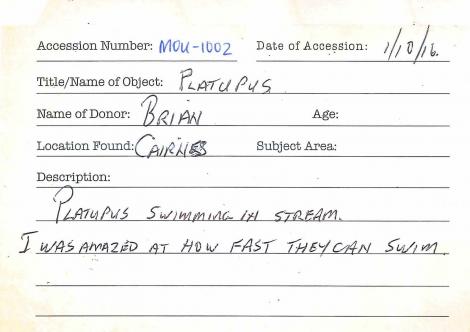 Accession Number: MOU-1002 Date of Accession: 1/10/16.
Title/Name of Object: PLATUPUS
Name of Donor: BRIAN Age:
Location Found: CAIRNES Subject Area:
Description:
PLATUPUS SWIMMING IN STREAM.
I WAS AMAZED AT HOW FAST THEY CAN SWIM.